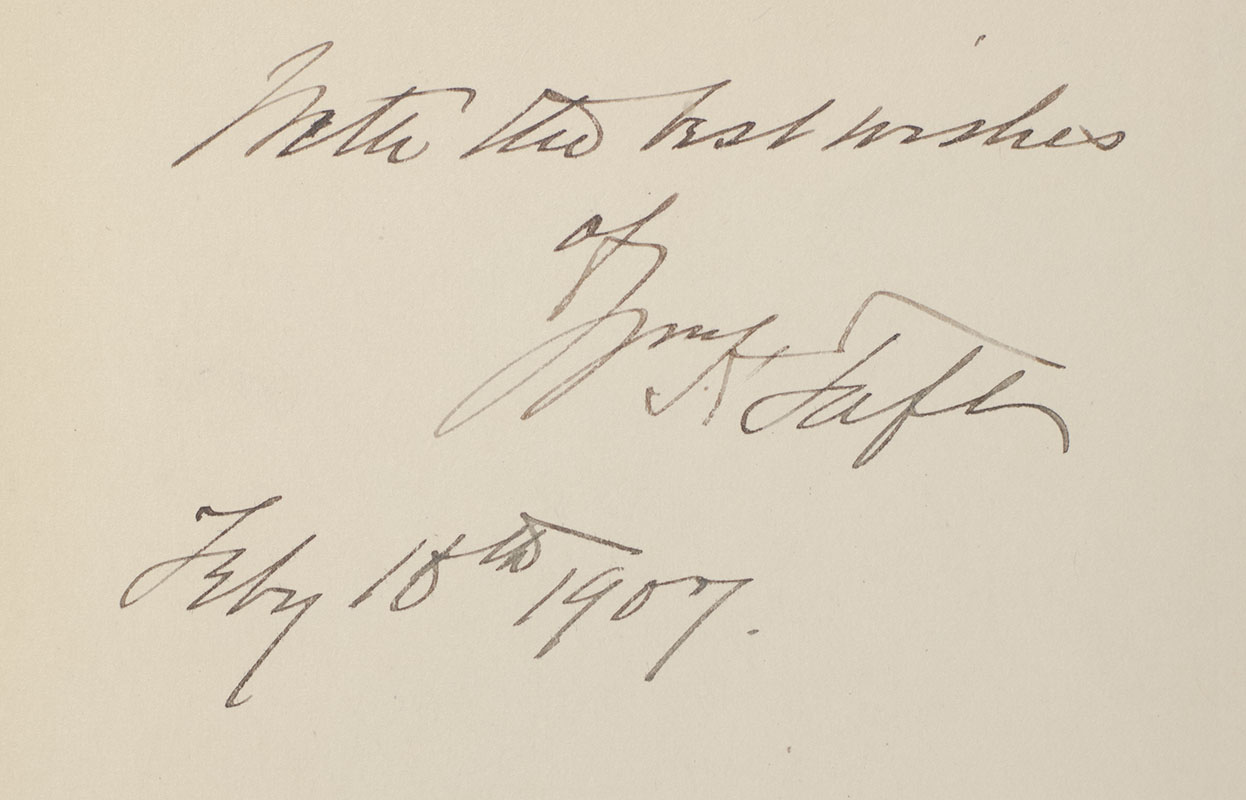 With the best wishes
of
Wm H Taft
Feby 18th 1907.